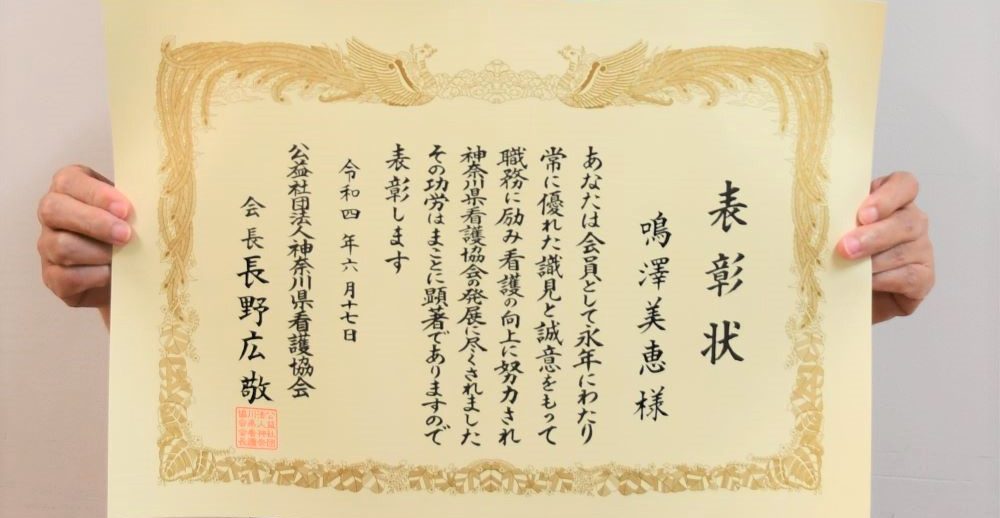 表彰状
鳴澤美恵様
あなたは会員として永年にわたり
常に優れた識見と誠意をもって
職務に励み看護の向上に努力され
神奈川県看護協会の発展に尽くされました
その功労はまことに顕著でありますので
表彰します
令和四年六月十七日
公益社団法人神奈川県看護協会
会長長野広敬
公益社団
法人神奈
川県看護
協会会長